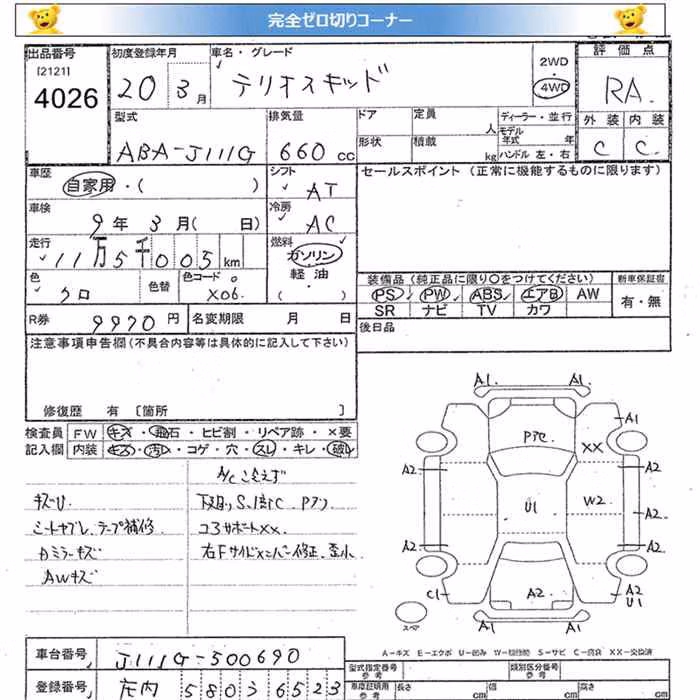 完全ゼロ切りコーナー
出品番号
[2121]
4026
初度登録年月
20 3月
車名・グレード
テリオスキッド
2WD
4WD
評価点
RA
外装 内装
C C
型式
ABA-J111G
排気量
660 cc
ドア
形状
定員
人
積載
kg
ディーラー・並行
モデル年式 年
ハンドル 左・右
車歴
自家用・( )
シフト
AT
セールスポイント(正常に機能するものに限ります)
車検
9年 3月( 日)
冷房
AC
走行
11万5千005km
燃料
ガソリン
軽油
( )
色
クロ
色替
色コード
X06
装備品(純正品に限り○をつけてください)
PS PW ABS エアB AW
SR ナビ TV カワ
新車保証書
有・無
R券
9970円
名変期限 月 日
後日品
注意事項申告欄(不具合内容等は具体的に記入して下さい)
修復歴 有 〔箇所 〕
検査員
記入欄
FW キズ・飛石・ヒビ割・リペア跡・×要
内装 キズ・汚レ・コゲ・穴・スレ・キレ・破レ
A/C
キズU
下廻りS
シートヤブレ テープ補修
コアサポートXX
カラミラーキズ
右Fサイドメンバー修正
AWキズ
A1 A1
A1
XX
A2 A2
U1 W2
A2
A2 A2
C1 A2 A2
U1
A1 A1
スペア
A-キズ E-エクボ U-凹み S-サビ C-腐食 XX-交換済
車台番号
J111G-500690
登録番号
庄内 580 3 6523
型式指定番号
参考
類別区分番号
参考
車庫証明用
参考
長さ cm
幅 cm
高さ cm